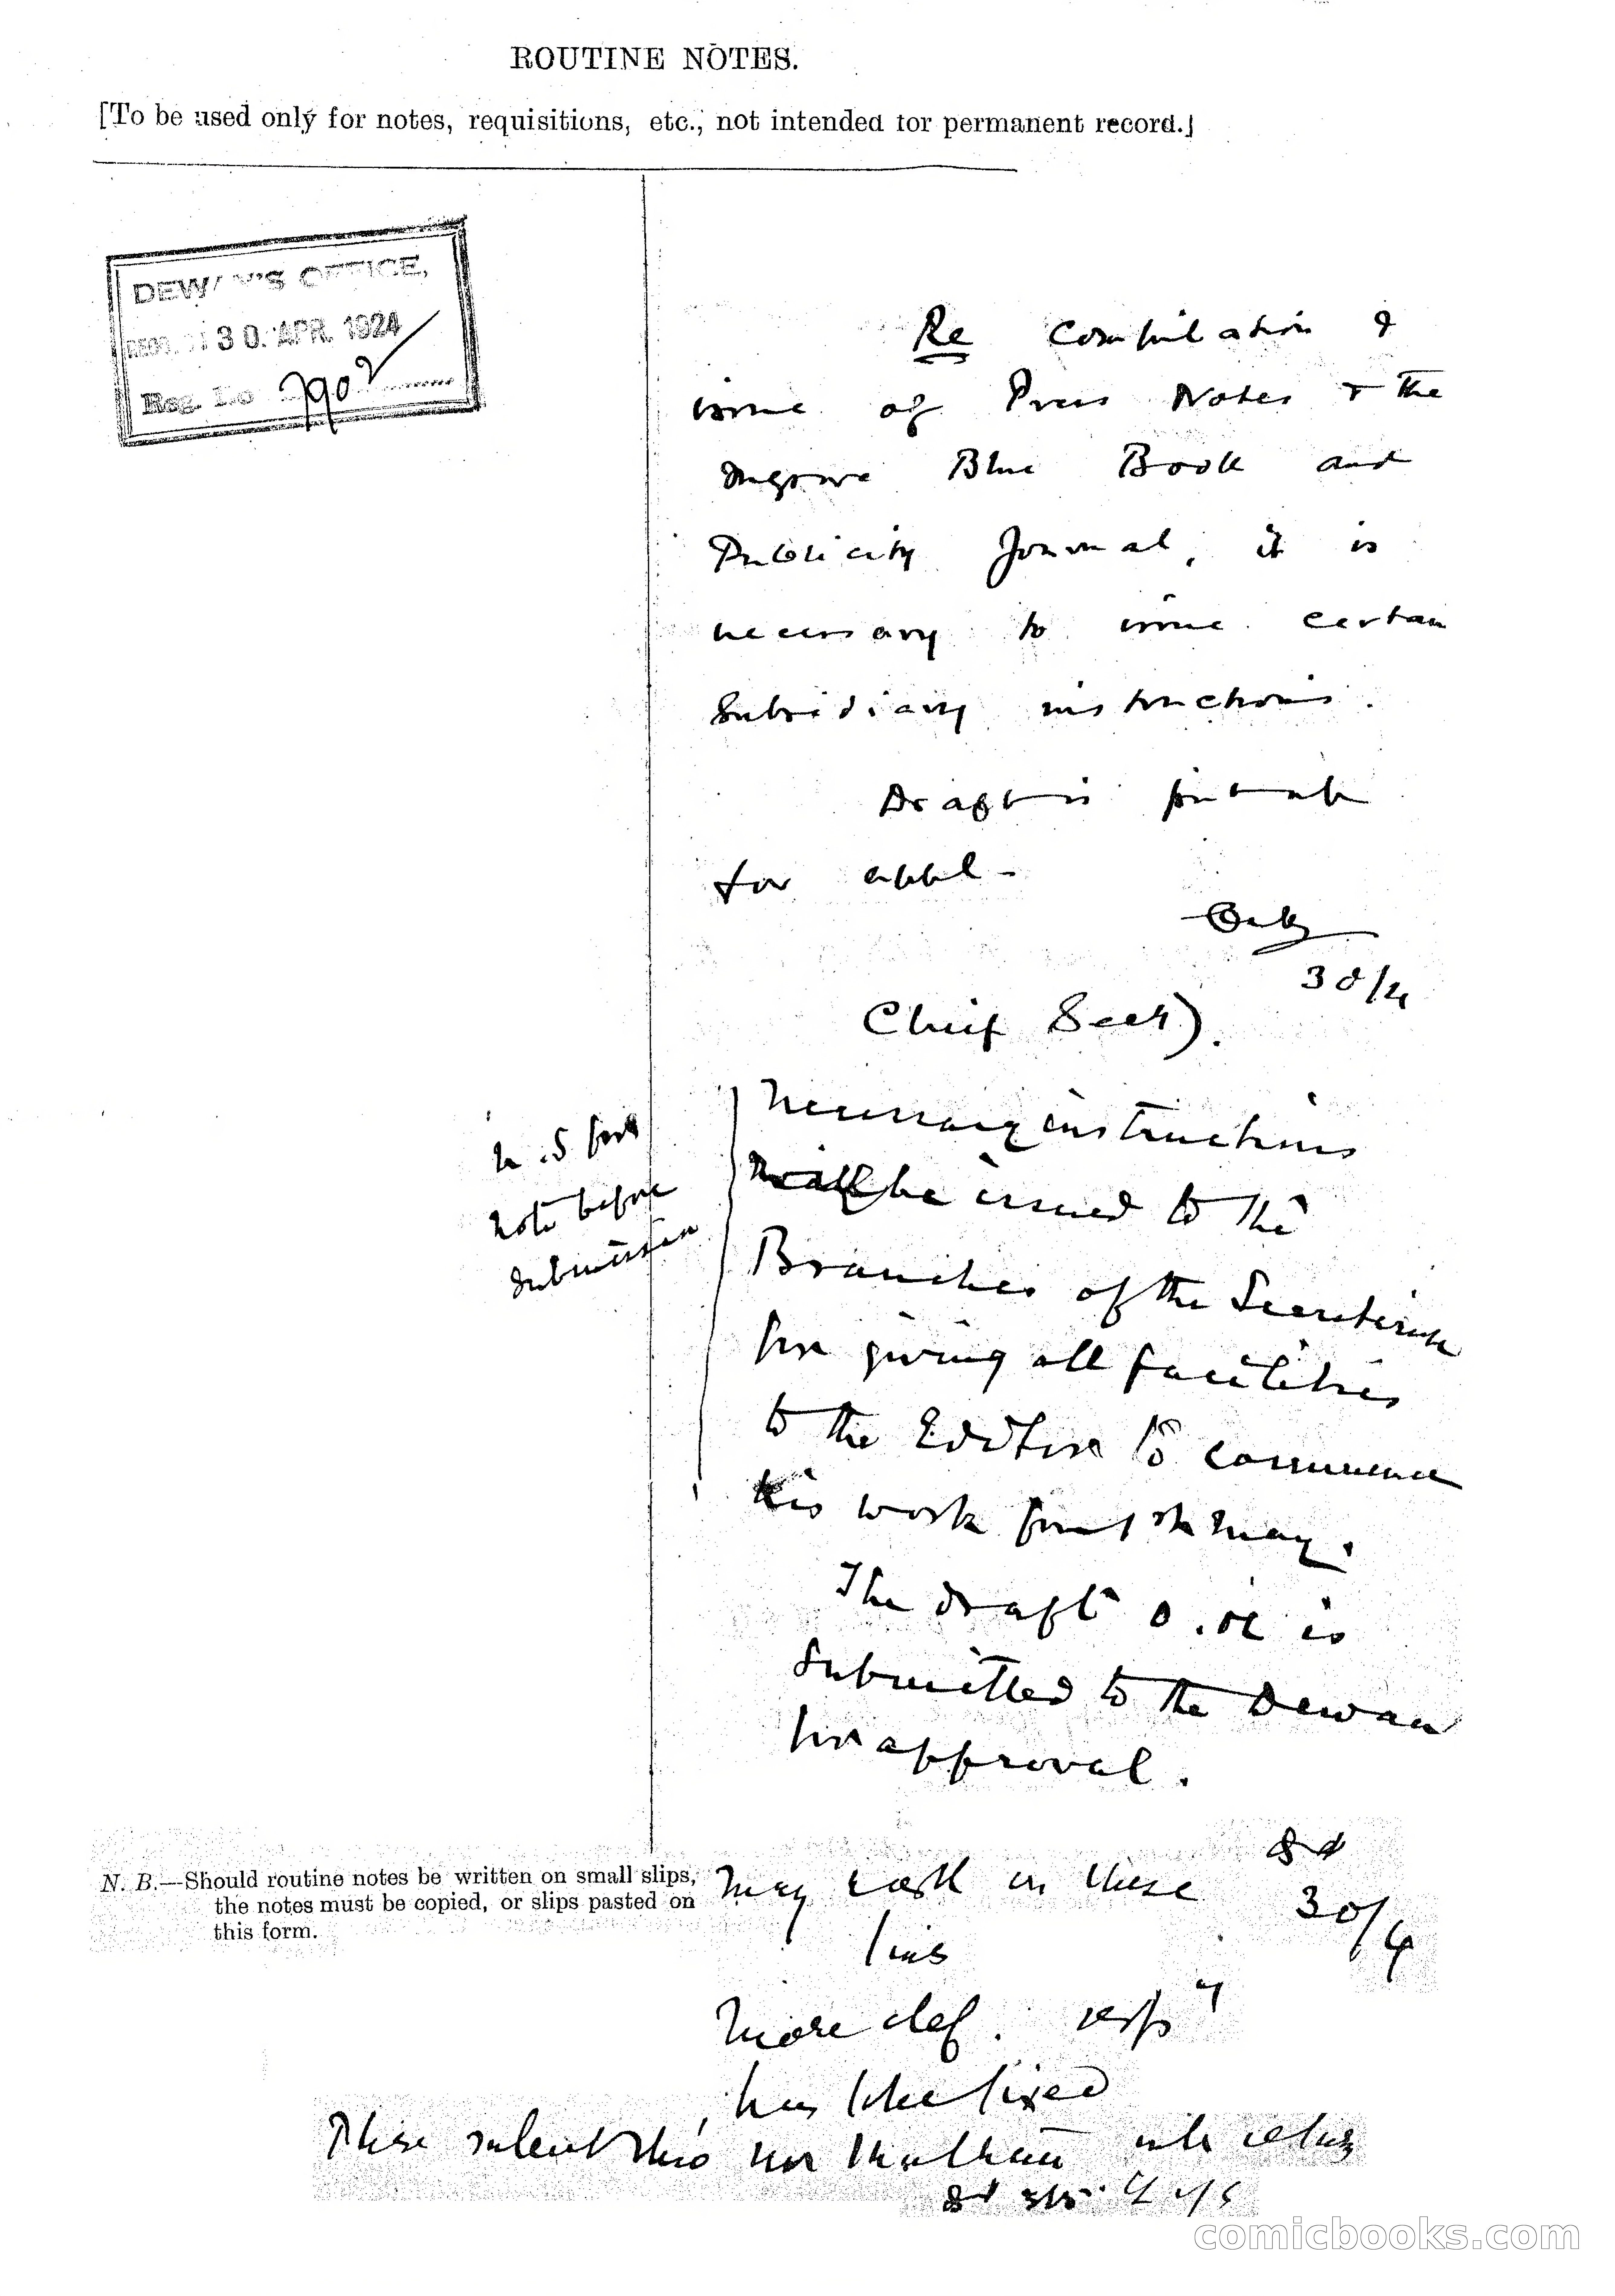 ROUTINE NOTES.
[To be used only for notes, requisitions, etc., not intended for permanent record.]
DEWAN'S OFFICE,
30 APR. 1924
Reg. No 7902
Re Compilation &
issue of Press Notes & the
Mysore Blue Book and
Publicity Journal, it is
necessary to issue certain
subsidiary instructions.
Draft is put up
for appl -
30/4
Chief Secy).
Necessary instructions
be issued to the
Branches of the Secretariat
for giving all facilities
to the Editor to commence
his work from 1st May.
note before
submission
The draft O. is
submitted to the Dewan
for approval.
30/4
N. B.—Should routine notes be written on small slips,
the notes must be copied, or slips pasted on
this form.
May in these
lines
More def.
fixed
this
comicbooks.com